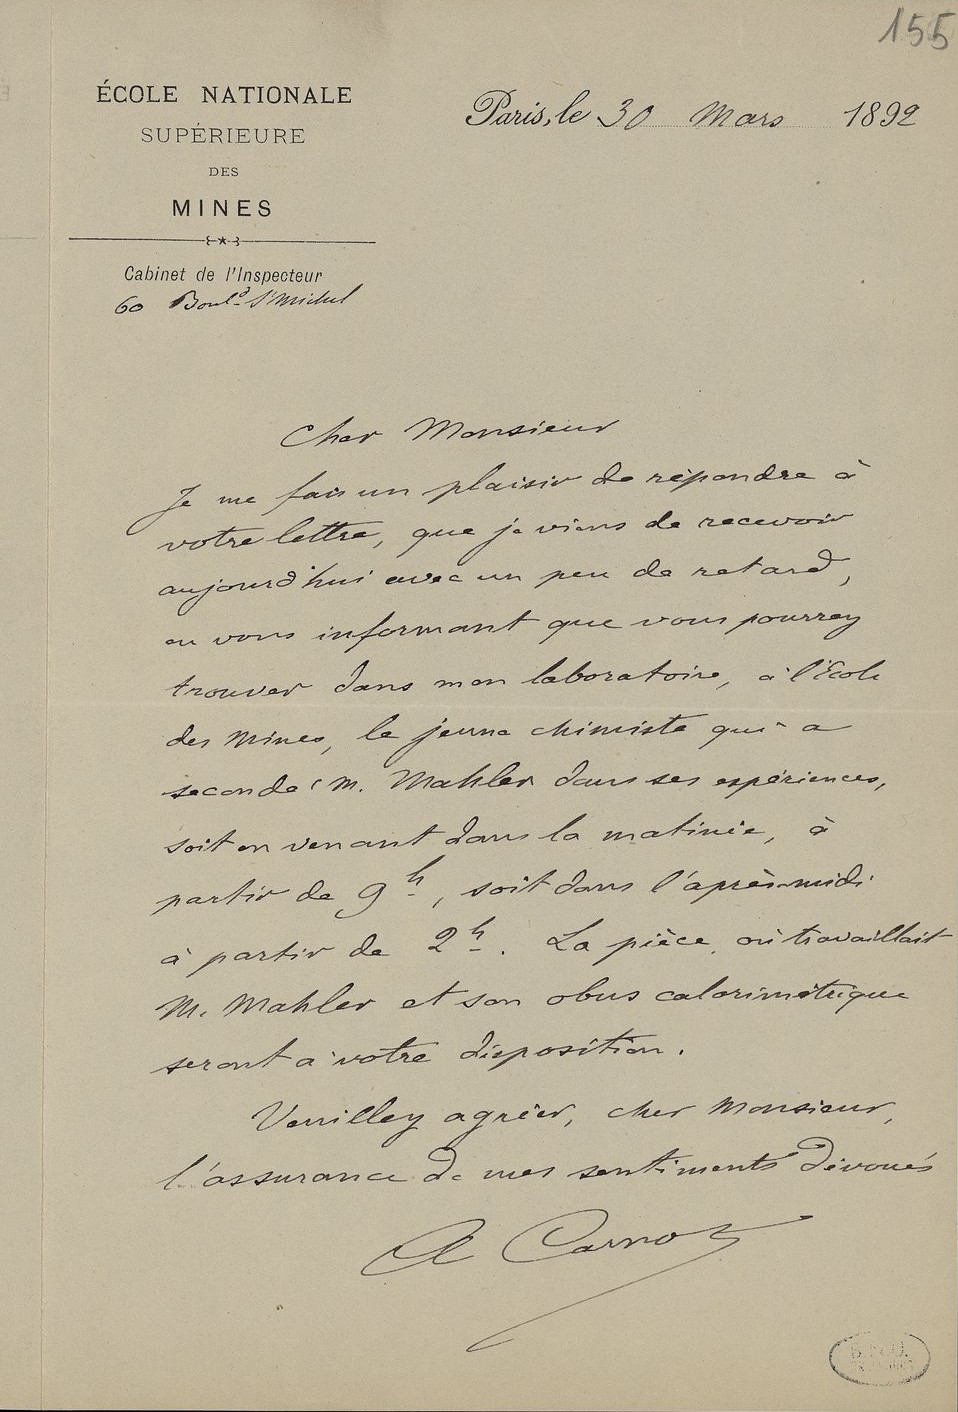 155
ÉCOLE NATIONALE
SUPÉRIEURE
DES
MINES
Cabinet de l'Inspecteur
60 Boul.d St Michel
Paris, le 30 Mars 1892
Cher Monsieur
Je me fais un plaisir de répondre à
votre lettre, que je viens de recevoir
aujourd'hui avec un peu de retard,
en vous informant que vous pourrez
trouver dans mon laboratoire, à l'Ecole
des Mines, le jeune chimiste qui a
secondé M. Mahler dans ses expériences,
soit en venant dans la matinée, à
partir de 9h, soit dans l'après-midi
à partir de 2h. La pièce où travaillait
M. Mahler et son obus calorimétrique
seront à votre disposition.
Veuillez agréer, cher Monsieur,
l'assurance de mes sentiments dévoués
A Carnot